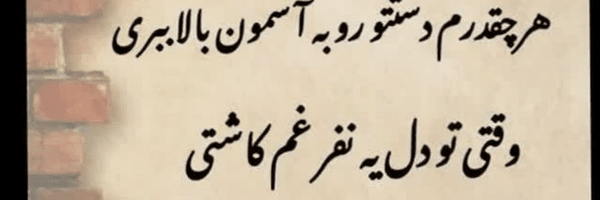 هر چقدرم دستتو رو به آسمون بالا ببری
وقتی تو دل یه نفر غم کاشتی